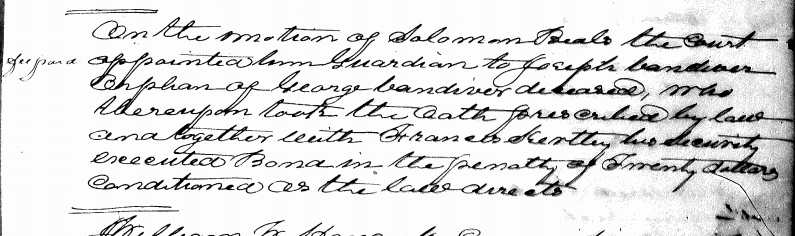 On the motion of Solomon Beals the Court
appointed him Guardian to Joseph Vandiver
Orphan of George Vandiver deceased, who
thereupon took the Oath prescribed by law
and together with Francis Kertley his security
executed Bond in the penalty of Twenty dollars
Conditioned as the law directs
William